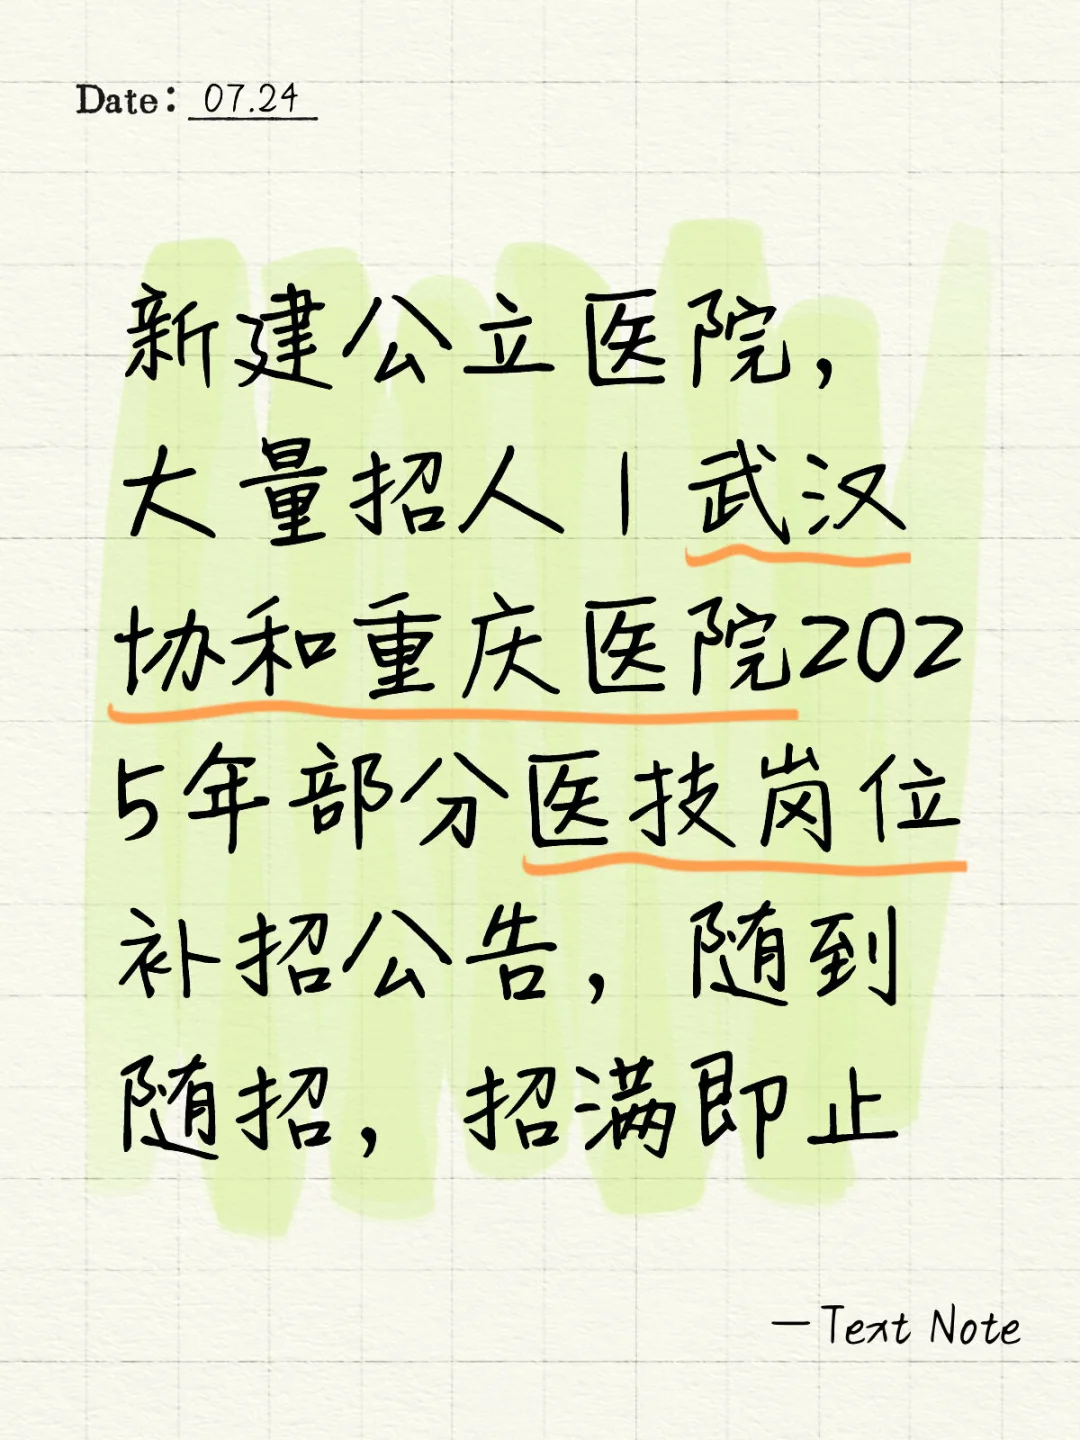 Date: 07.24
新建公立医院，
大量招人丨武汉
协和重庆医院202
5年部分医技岗位
补招公告，随到
随招，招满即止
—Text Note